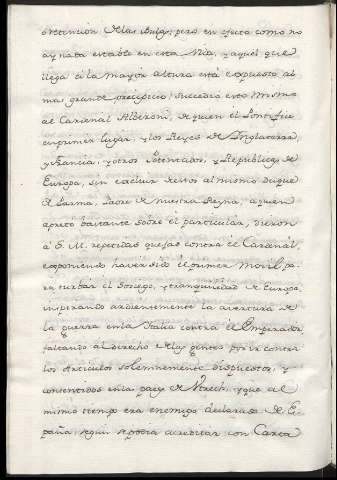 obtencion de las Bulas; pero en efecto como no
ay nada estable en esta Vida, y aquel que
llega à la mayor altura está expuesto al
mas grande precipicio; succedió esto mismo
al Cardenal Alberoni, de quien el Pontifice
en primer lugar, y los Reyes de Inglaterra,
y Francia, y otros Potentados, y Republicas de
Europa, sin excluir de estos al mismo Duque
de Parma, Padre de nuestra Reyna, a quien
apretó bastante sobre el particular, dieron
à S. M. repetidas quejas contra el Cardenal,
exponiendo haver sido el primer movil, pa-
ra turbar el Sosiego, y tranquilidad de Europa,
inspirando ardientemente la avertura de
la guerra en la Italia contra el Emperador
faltando al derecho de las gentes por ir contra
los Articulos solemnemente dispuestos, y
consentidos en la paz de Vtrech, y que al
mismo tiempo era enemigo declarado de Es-
paña, segun se podia acreditar con Carta